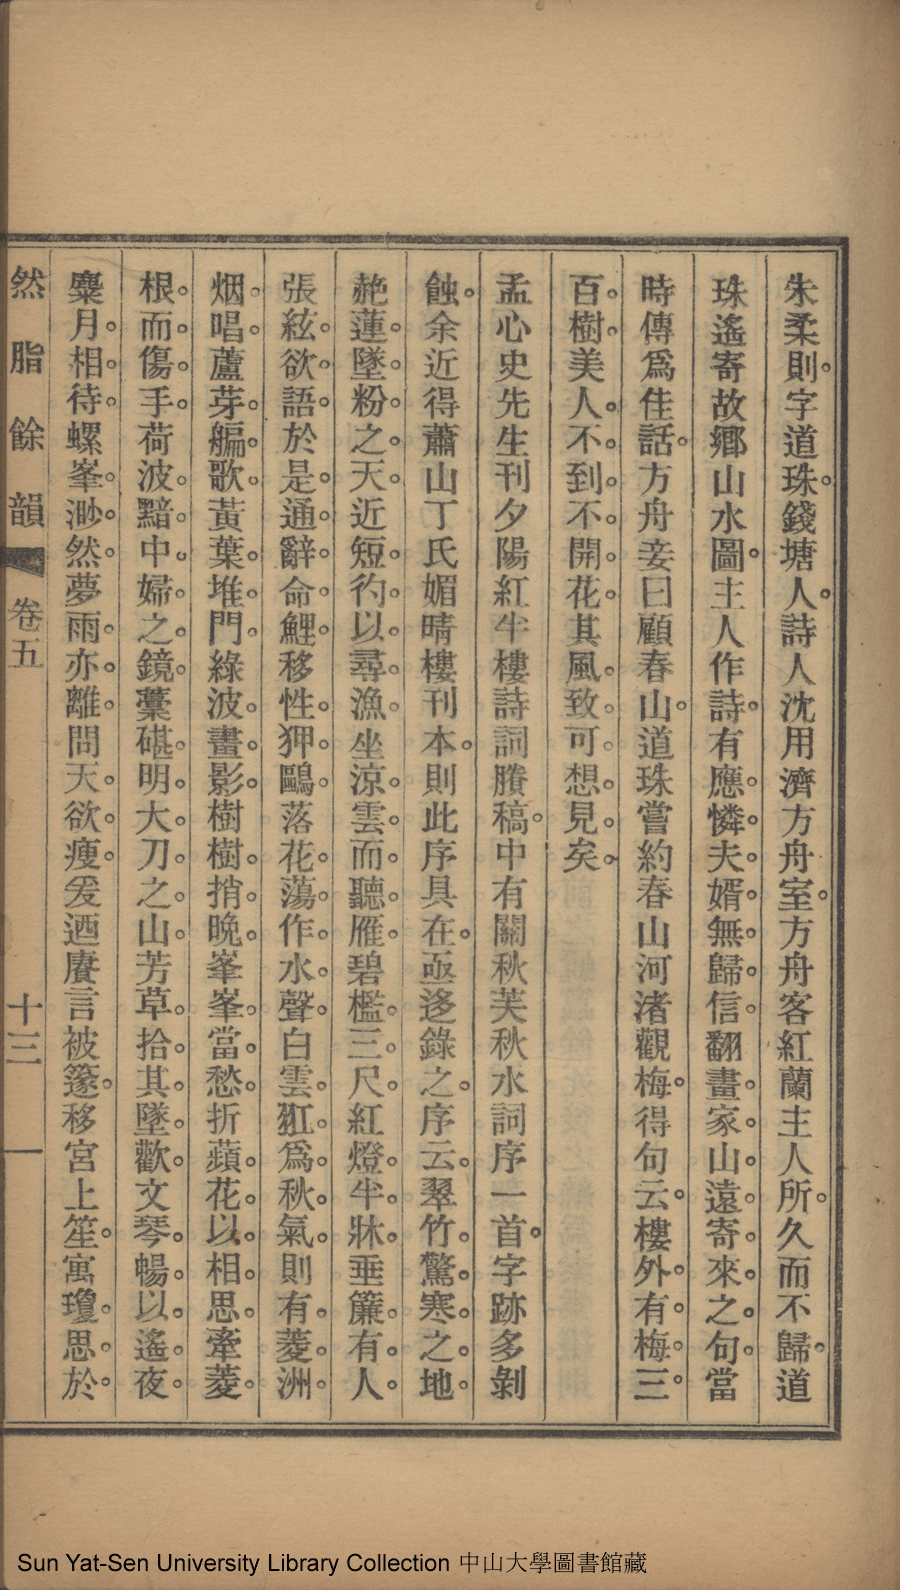 朱柔則字道珠錢塘人詩人沈用濟方舟室方舟客紅蘭主人所久而不歸道
珠遙寄故鄉山水圖主人作詩有應憐夫婿無歸信翻畫家山遠寄來之句當
時傳爲佳話方舟妾曰顧春山道珠嘗約春山河渚觀梅得句云樓外有梅三
百樹美人不到不開花其風致可想見矣
孟心史先生刊夕陽紅半樓詩詞賸稿中有關秋芙秋水詞序一首字跡多剝
蝕余近得蕭山丁氏媚晴樓刊本則此序具在亟迻錄之序云翠竹驚寒之地
赩蓮墜粉之天近短彴以尋漁坐涼雲而聽雁碧檻三尺紅燈半牀垂簾有人
張絃欲語於是通辭命鯉移性狎鷗落花蕩作水聲白雲瓨爲秋氣則有菱洲
烟唱蘆芽艑歌黃葉堆門綠波畫影樹樹捎晚峯峯當愁折蘋花以相思牽菱
根而傷手荷波黯中婦之鏡藁碪明大刀之山芳草拾其墜歡文琴暢以遙夜
麋月相待螺峯渺然夢雨亦離問天欲瘦爰迺賡言被篴移宮上笙寓瓊思於
然脂餘韻
卷五
十三
一
Sun Yat-Sen University Library Collection 中山大學圖書館藏